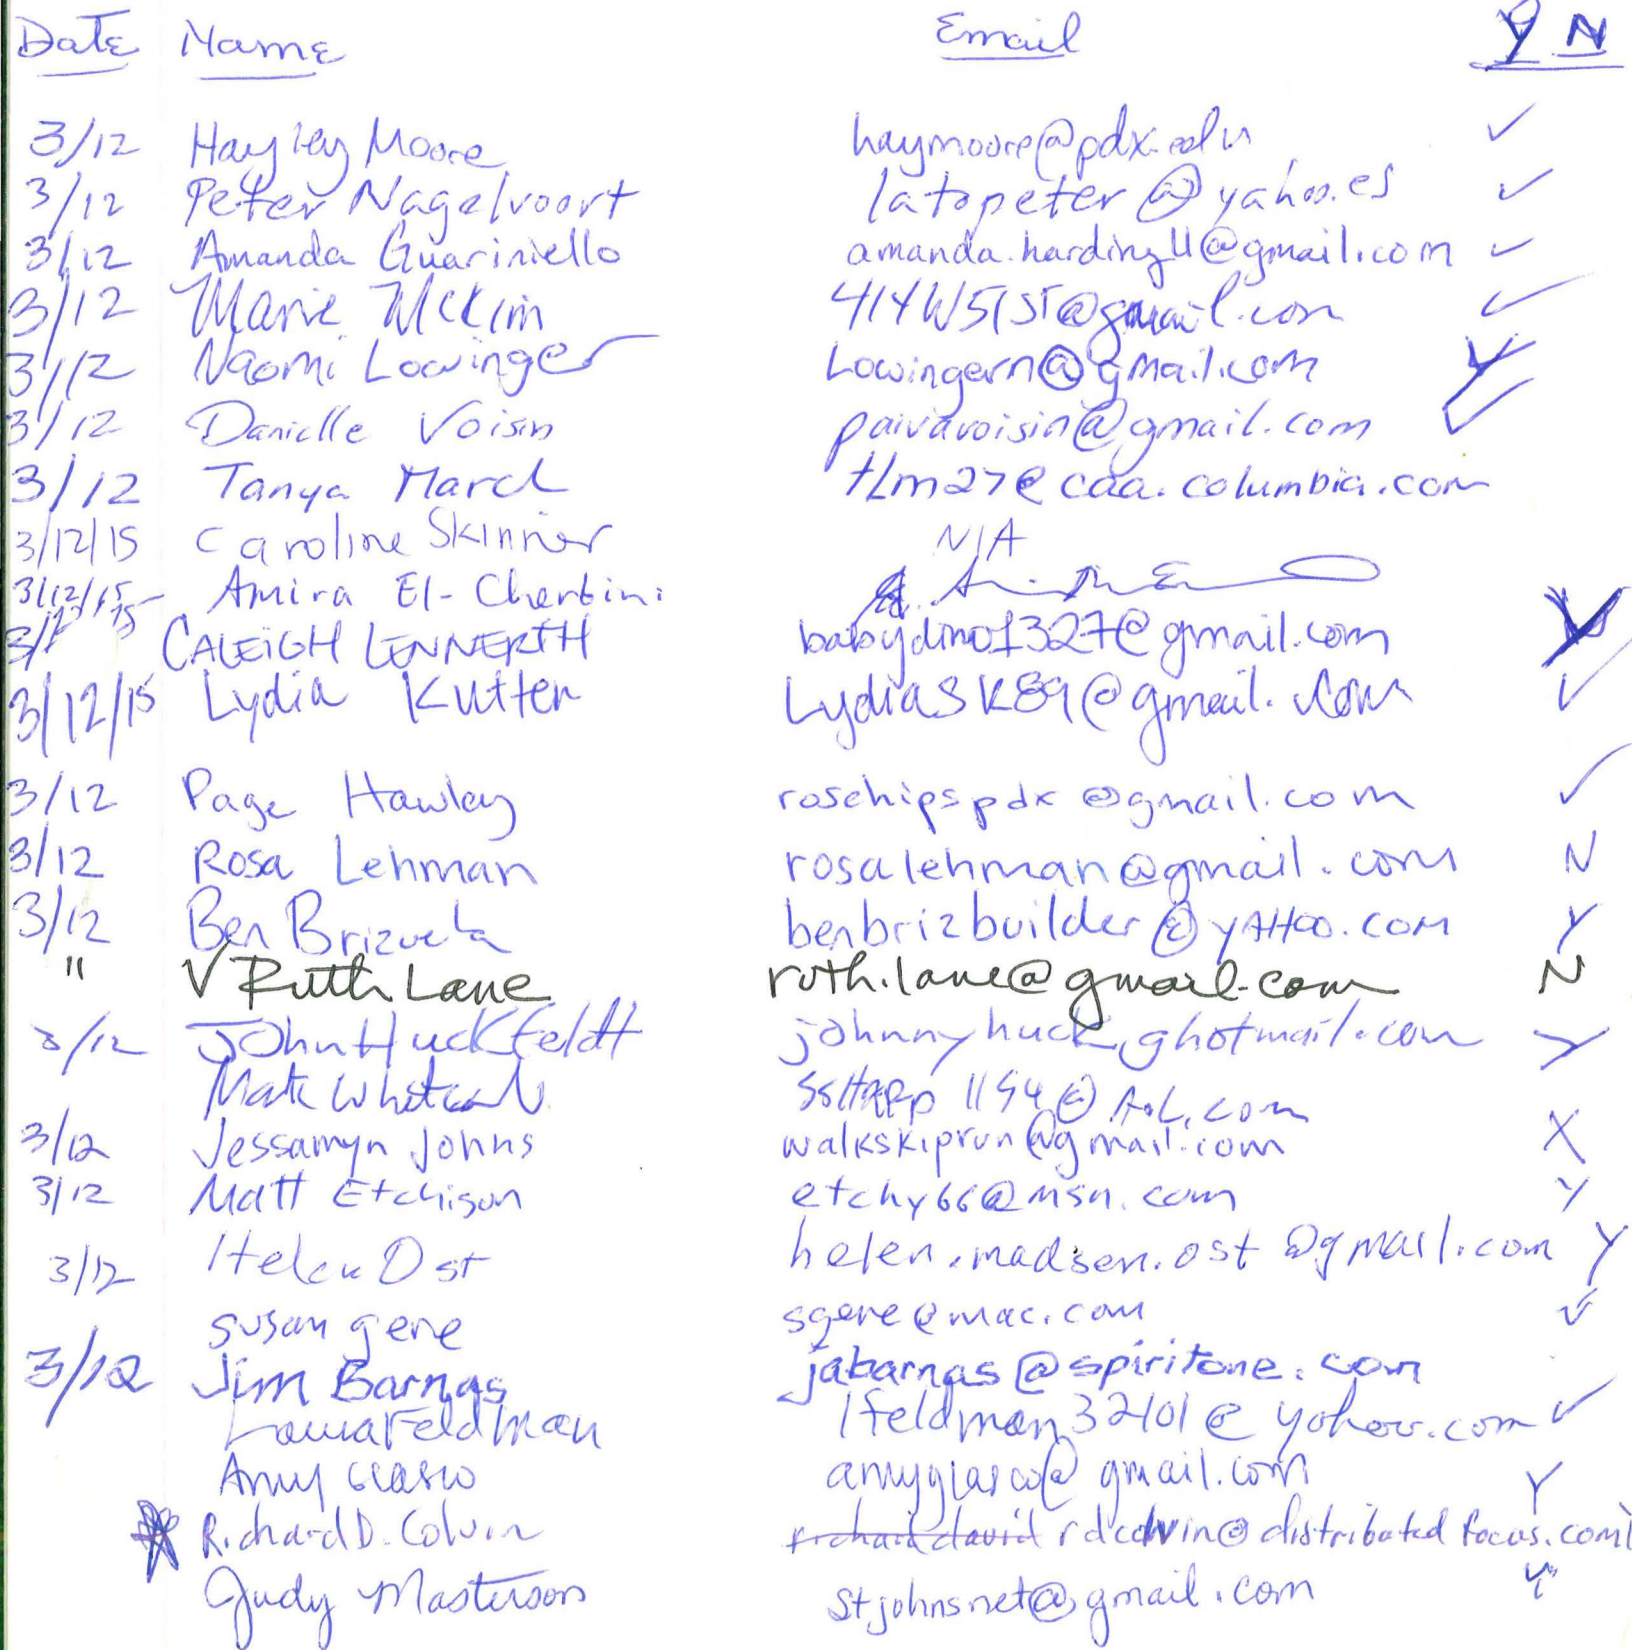 Date Name Email Y N
3/12 Hayley Moore haymoore@pdx.edu ✓
3/12 Peter Nagelvoort latopeter@yahoo.es ✓
3/12 Amanda Guariniello amanda.harding11@gmail.com ✓
3/12 Marie McKim 414W51ST@gmail.com ✓
3/12 Naomi Lowinger Lowingern@gmail.com Y
3/12 Danielle Voisin paivavoisin@gmail.com ✓
3/12 Tanya March tlm27@caa.columbia.com
3/12/15 Caroline Skinner N/A
3/12/15 Amira El-Cherbini
3/12/15 CALEIGH LENNERTH babydino1327@gmail.com Y
3/12/15 Lydia Kutter LydiaSK89@gmail.com ✓
3/12 Page Hawley rosehipspdx@gmail.com ✓
3/12 Rosa Lehman rosalehman@gmail.com N
3/12 Ben Brizuela benbrizbuilder@yAHoo.com Y
" √ Ruth Lane ruth.lane@gmail.com N
3/12 John Huckfeldt johnnyhuck@hotmail.com Y
Mark 
3/12 Jessamyn Johns walkskiprun@gmail.com X
3/12 Matt Etchison etchy66@msn.com Y
3/12 Helen Ost helen.madsen.ost@gmail.com Y
susan gene sgene@mac.com ✓
3/12 Jim Barnas jabarnas@spiritone.com
Laura Feldman lfeldman32101@yahoo.com ✓
Amy Glasco amyglasco@gmail.com Y
Richard D. Colvin richard david rdcolvin@distributedfocus.com
Judy Masterson stjohnsnet@gmail.com Y